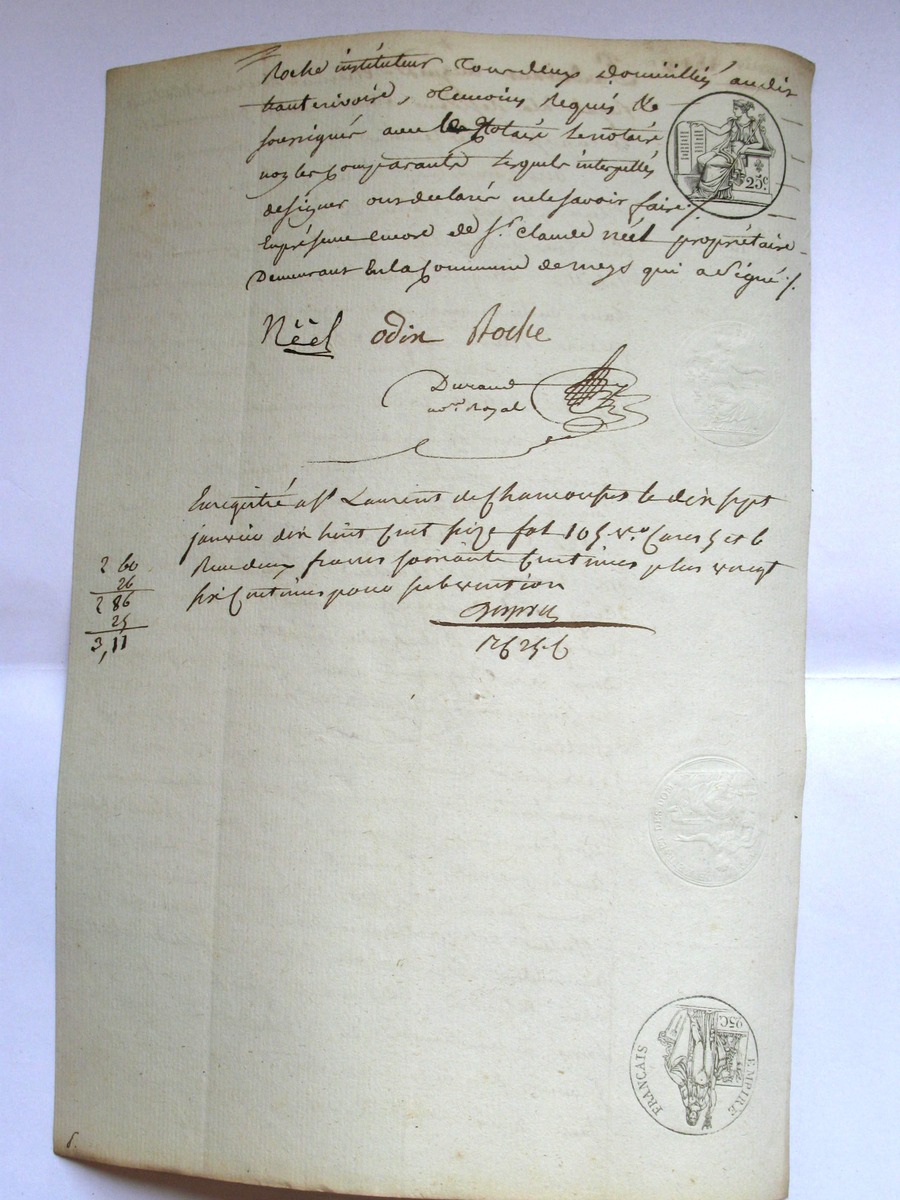 Roche instituteur tous deux domiciliés audit
hauterivoire, temoins requis &
soussignés avec le Notaire le notaire
non les comparants lesquels interpellés
designer ont declaré ne le savoir faire ./.
En présence encore de Sr. Claude néel propriétaire
Demeurant En la Commune de meys qui a Signé ./.
25c.
Néel odin Roche
Durand
nore. Royal
Enregistré a St Laurent de Chamousset le dix sept
janvier dix huit cent seize fol 105 vo. Cases 5 et 6
Reçu deux francs soixante Centimes plus vingt
six Centimes pour subvention
2 60
26
2 86
25
3,11
EMPIRE FRANCAIS
25C.